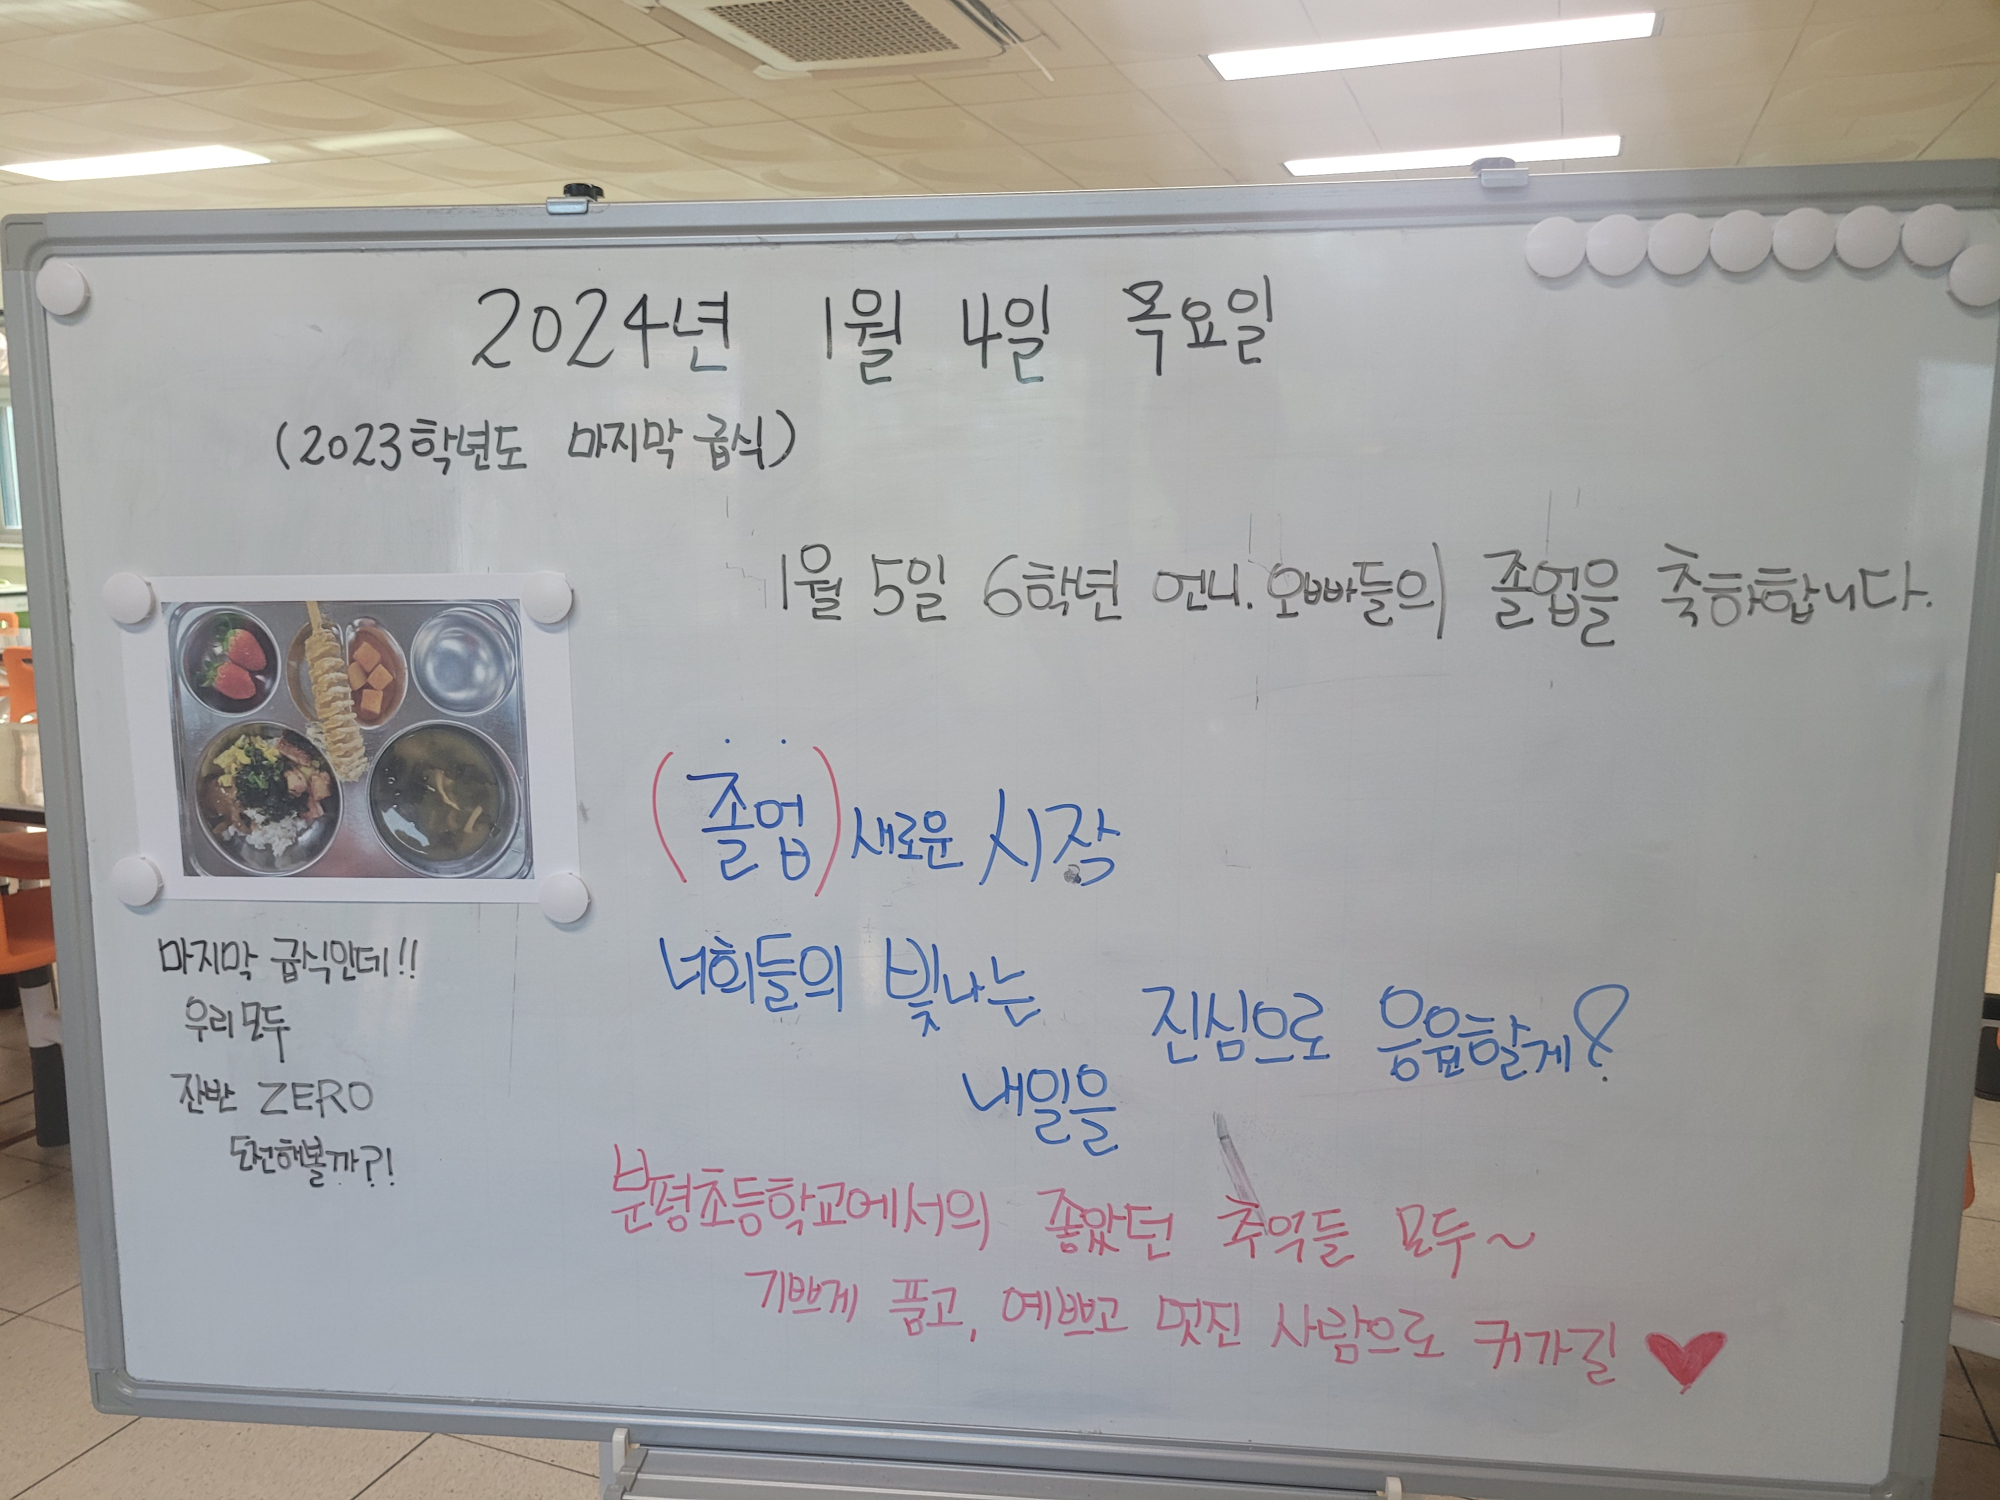 2024년 1월 4일 목요일
(2023학년도 마지막 급식)
1월 5일 6학년 언니.오빠들의 졸업을 축하합니다.
(졸업) 새로운 시작
너희들의 빛나는
내일을
진심으로 응원할게?
마지막 급식인데!!
우리 모두
잔반 ZERO
도전해볼까?!
분평초등학교에서의 좋았던 추억들 모두~
기쁘게 품고, 예쁘고 멋진 사람으로 커가길 ♥